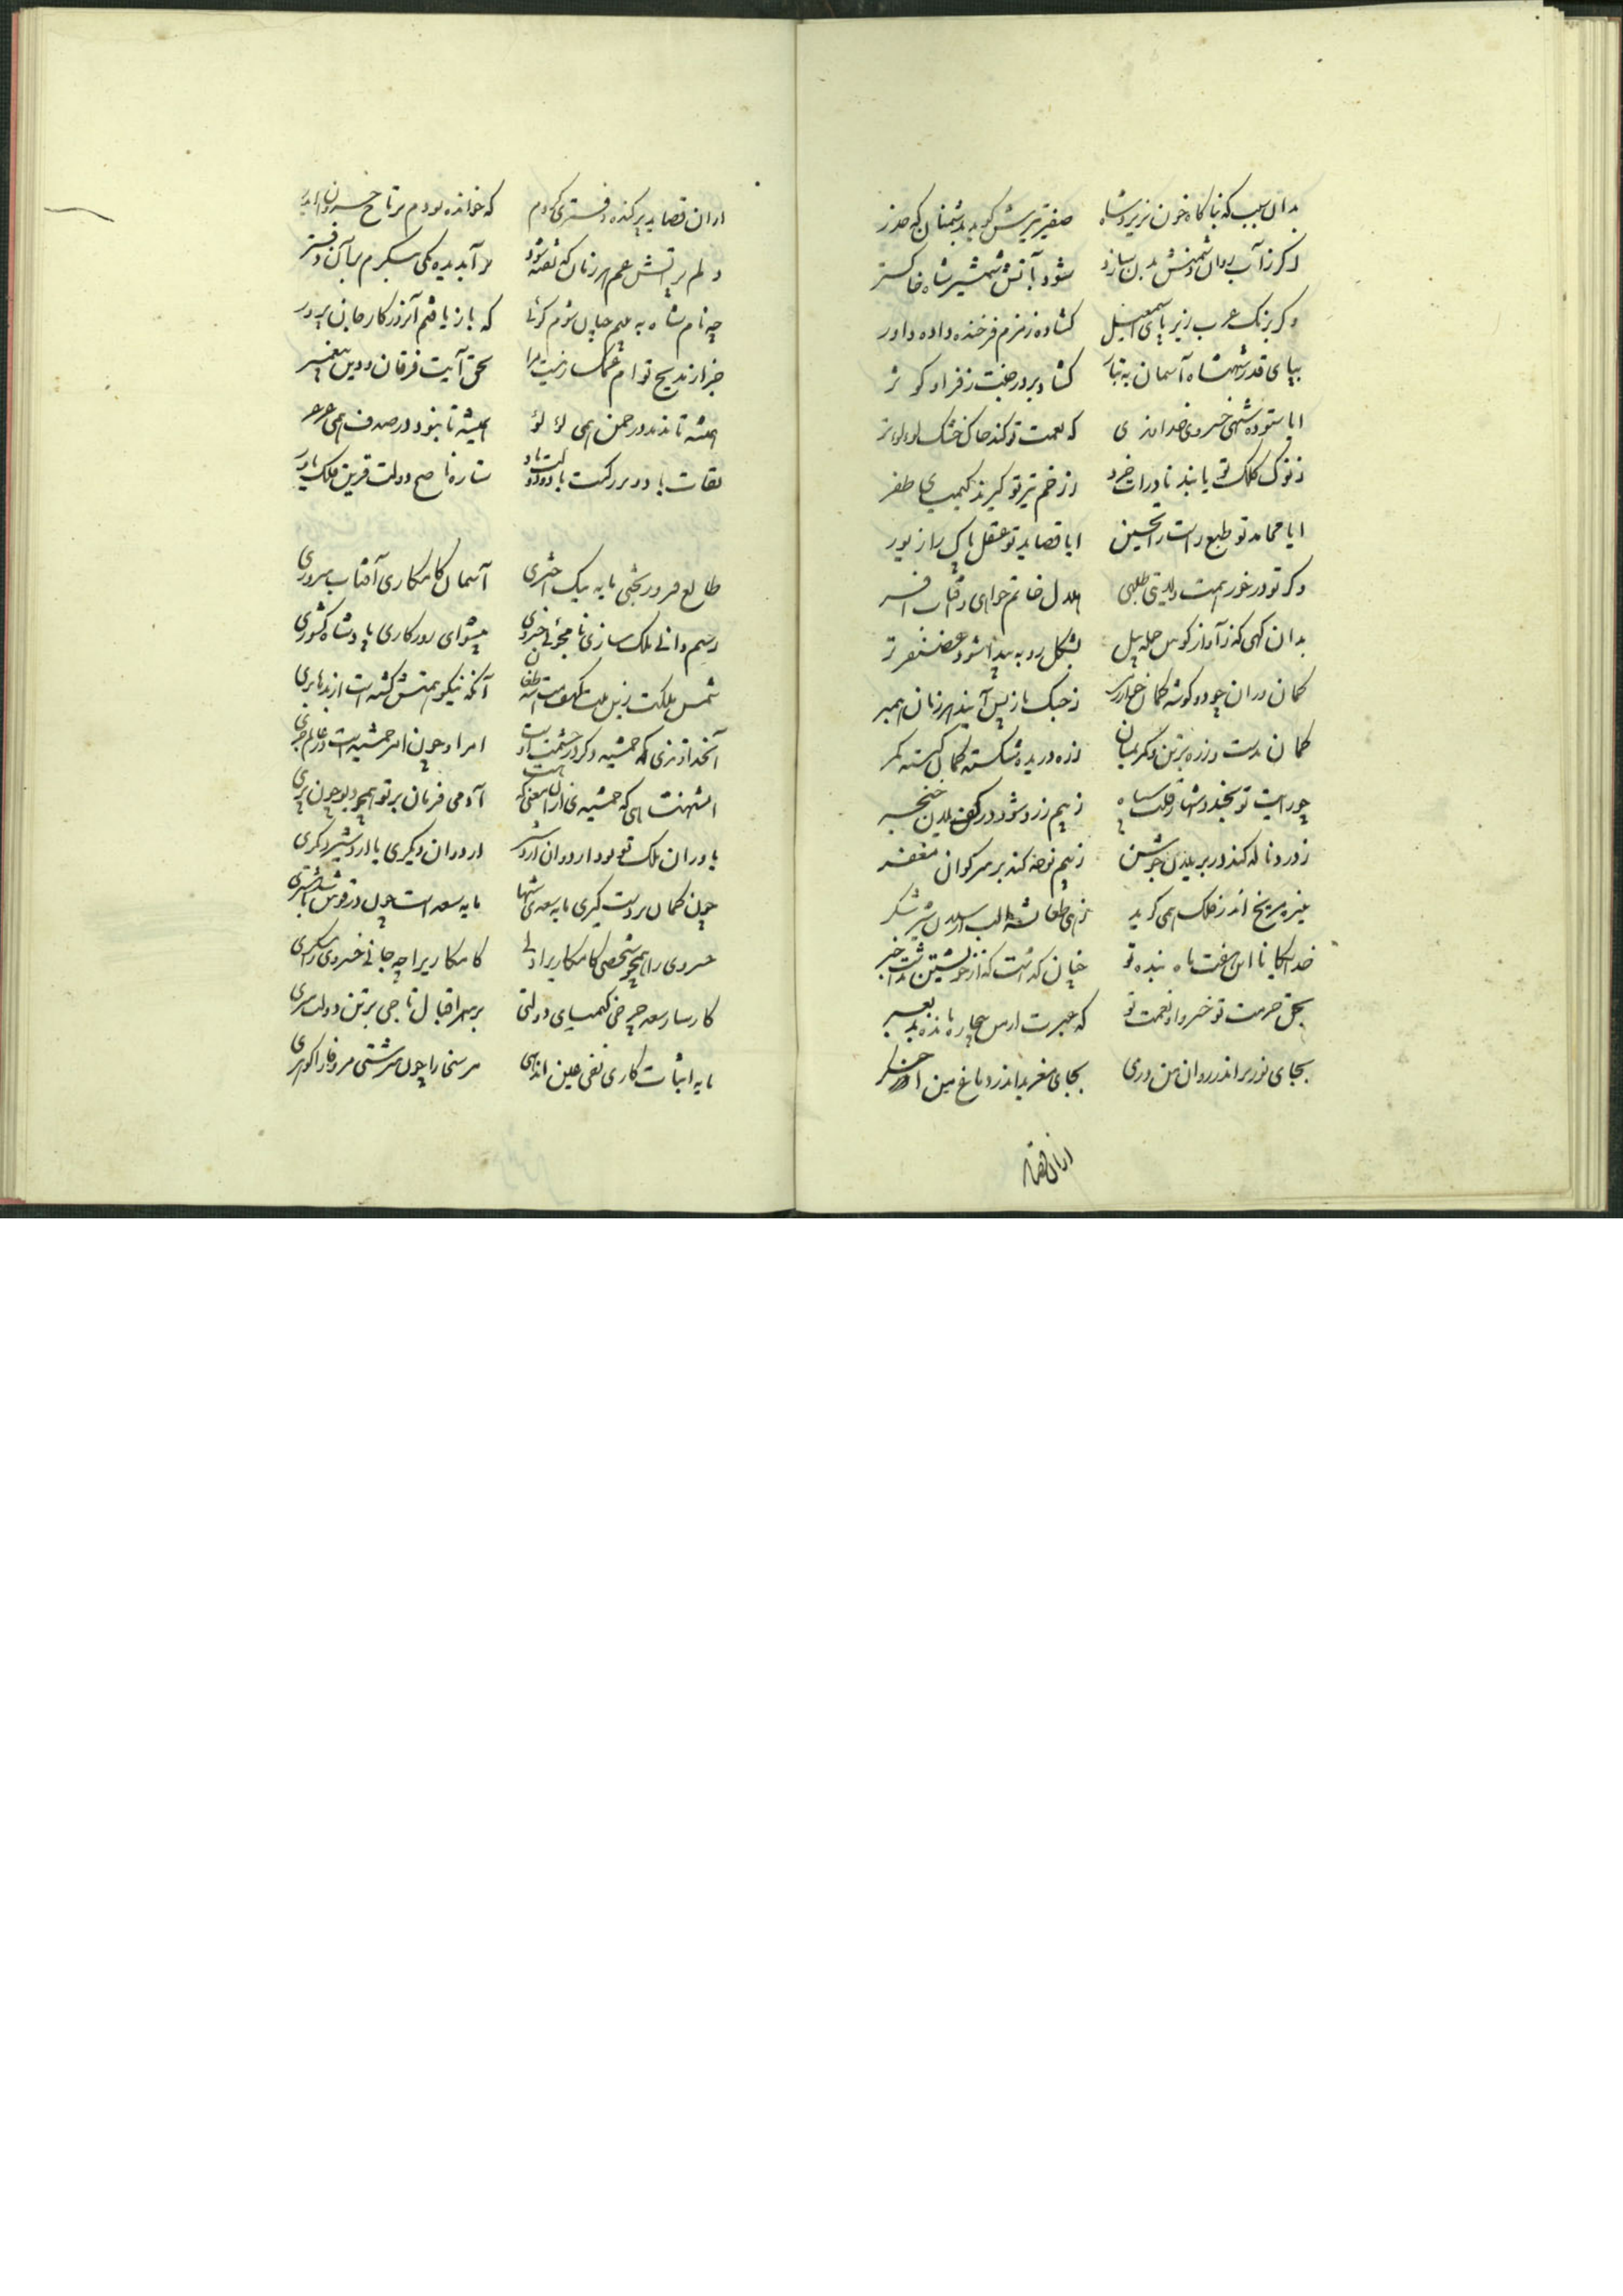 بدان سبب که بناگاه خون نریزد شاه صفیر تیرش گوید بدشمنان که حذر
اگر ز آب روان دشمنش بدن سازد شود بآتش شمشیر شاه خاکستر
وگر بزنگ عرب زیر پای اسمعیل گشاده زمزم فرخنده داده داور
بپای قدر شهنشاه آسمان به نیاز گشاد بر در جنت ز فر او کوثر
ایا ستوده شهی خسروی خداوندی که نعمت تو کند خاک خشک لولو تر
ز نوک کلک تو یابند نادرات خرد ز زخم تیر تو گیرند کیمیای ظفر
ایا محامد تو طبع راست را تحسین ایا قصاید تو عقل پاک را زیور
وگر تو درخور همت ولایتی طلبی هلال خاتم خواهی و آفتاب افسر
بدان گهی که ز آواز کوس حمله پیل بشکل روبه پیدا شود غضنفر نر
کمان وران چو دو گوشه کمان ز جنگ باز پس آیند هر زمان همبر
کمان بدست و زره بر تن و کمر بمیان زره دریده شکسته کمان گسسته کمر
چو رایت تو بجنبد شها ز قلب سپاه ز بیم زرد شود در کف یلان خنجر
ز درد ناله کند در بر یلان جوشن ز بیم نوحه کند بر سر گوان مغفر
بتیر مریخ اندر فلک همی گرید زهی طغانشه الب ارسلان شیر شکر
خدایگانا این هفت ماه بنده تو چنان گذاشت کش از خویشتن نداشت خبر
بحق حرمت تو خسروا و نعمت تو که عبرت است ازین بیچاره مانده بد
بجای نور بد اندر روان من دردی بجای مغز بد اندر دماغ من اخگر
از آن قصاید
از آن قصاید پرکنده دفتری کردم که خوانده بودم بر تاج خسروان
دلم بر آتش غم هر زمان که تفته شود بر آبدیده یکی بنگرم بآن دفتر
چو نام شاه به بینم چنان شوم گوئی که باز یافتم آنروز کار جان پرور
جز از مدیح تو ام غمگسار نیست مرا بحق آیت فرقان و دین پیغمبر
همیشه تا ندمد در چمن همی لؤلؤ همیشه تا نبود در صدف همی عرعر
بقات باد و بزرگیت باد و دولت باد ستاره ناصح و دولت قرین و ملک یاور
طالع فیروز بختی مایه نیک اختری آسمان کامکاری آفتاب سروری
رسم دانی ملک سازی نامجوئی خسروی پیشوای روزگاری پادشاه کشوری
شمس ملکت زین ملت کهف امت شه طغان آنکه نیکو همتش گشته است از بدها بری
آنخداوندی که جمشید دگر در حشمت است امر او چون امر جمشید است در عالم جری
ای شهنشاهی که جمشیدی از آن معنی که هست آدمی فرمان بر تو همچو دیو چون پری
یا در آن ملک تو بود اردوان اردشیر اردوان دیگری یا اردشیر دیگری
چون کمان بر دست گیری مایه سعدی شها مایه سعد است چون در قوس باشد مشتری
خسروی را همچو شخصی کامکاریرا دلی کامکاریرا چو جانی خسروی را سری
کارساز سعد چرخی کیمیای دولتی بر سر اقبال تاجی بر تن دولت سری
مایه اثبات کاری نفی عین اندهی مر سخا را چون سرشتی مر وفا را گوهری